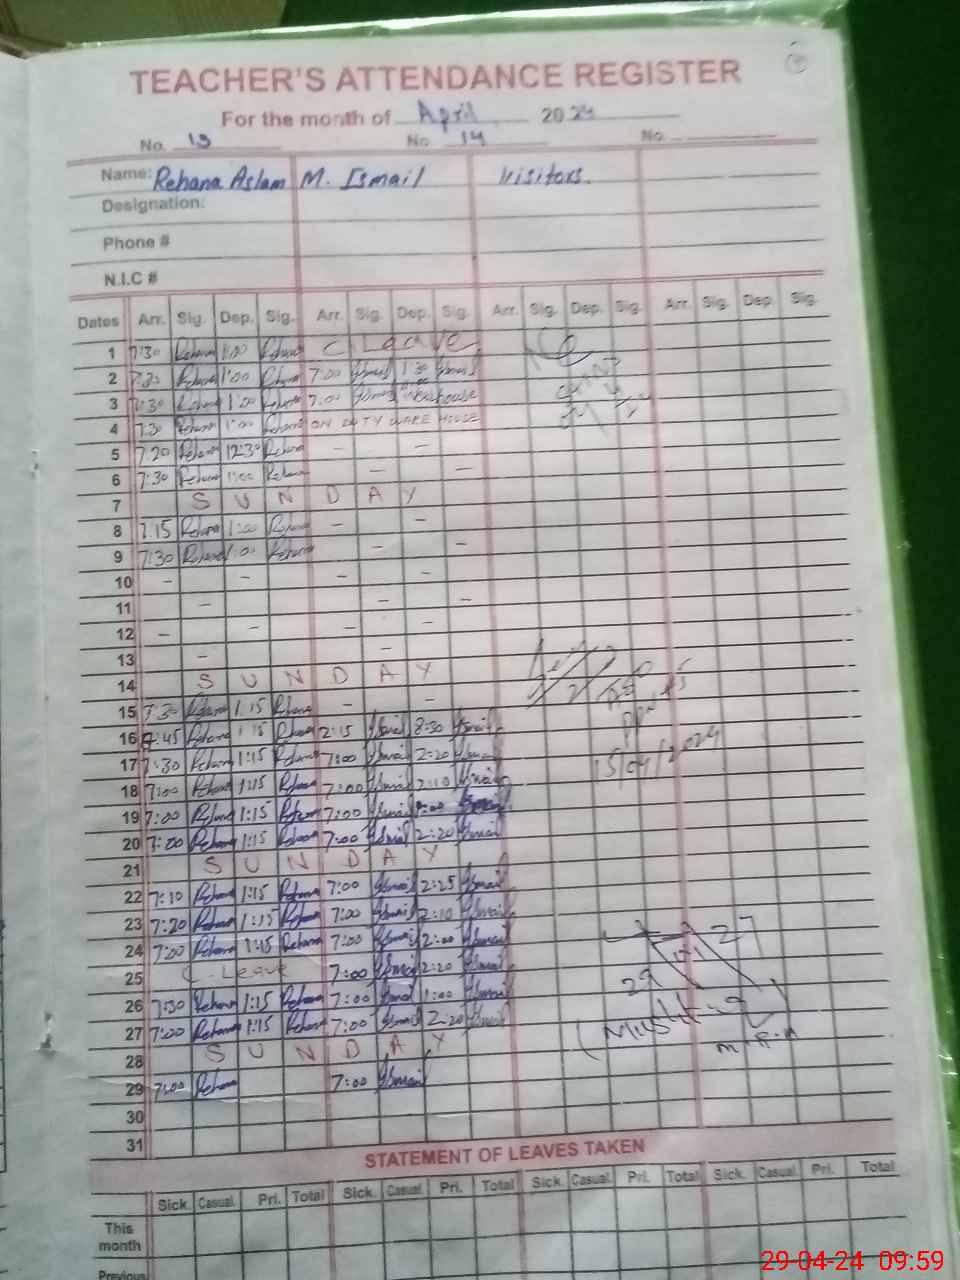 TEACHER'S ATTENDANCE REGISTER
For the month of April 2024
No. 13 No 14 No.
Name: Rehana Aslam M. Ismail Visitors.
Designation:
Phone #
N.I.C #
Dates Arr. Sig. Dep. Sig. Arr. Sig. Dep. Sig. Arr. Sig. Dep. Sig. Arr. Sig. Dep. Sig.
1 7:30 Rehana 1:00 Rehana C Leave
2 7:30 Rehana 1:00 Rehana 7:00 Ismail 1:30 Ismail
3 7:30 Rehana 1:00 Rehana 7:00 Ismail
4 7:30 Rehana 1:00 Rehana ON DUTY WARE HOUSE
5 7:20 Rehana 12:30 Rehana - -
6 7:30 Rehana 1:00 Rehana - -
7 S U N D A Y
8 7:15 Rehana 1:00 Rehana - -
9 7:30 Rehana 1:00 Rehana - -
10 - - - -
11 - - -
12 - - - -
13 - -
14 S U N D A Y
15 7:30 Rehana 1:15 Rehana - -
16 7:45 Rehana 1:15 Rehana 2:15 Ismail 8:30 Ismail
17 7:30 Rehana 1:15 Rehana 7:00 Ismail 2:20 Ismail
15/04/2024
18 7:00 Rehana 1:15 Rehana 7:00 Ismail 2:10 Ismail
19 7:00 Rehana 1:15 Rehana 7:00 Ismail
20 7:00 Rehana 1:15 Rehana 7:00 Ismail 2:20 Ismail
21 S U N D A Y
22 7:10 Rehana 1:15 Rehana 7:00 Ismail 2:25 Ismail
23 7:20 Rehana 1:15 Rehana 7:00 Ismail 2:10 Ismail
24 7:00 Rehana 1:15 Rehana 7:00 Ismail 2:00 Ismail
25 C - Leave 7:00 Ismail 2:20 Ismail
26 7:30 Rehana 1:15 Rehana 7:00 Ismail 1:00 Ismail
27 7:00 Rehana 1:15 Rehana 7:00 Ismail 2:20 Ismail
28 S U N D A Y
29 7:00 Rehana 7:00 Ismail
30
31
STATEMENT OF LEAVES TAKEN
Sick. Casual. Pri. Total Sick. Casual. Pri. Total Sick. Casual. Pri. Total Sick. Casual. Pri. Total
This month
Previous
29-04-24 09:59